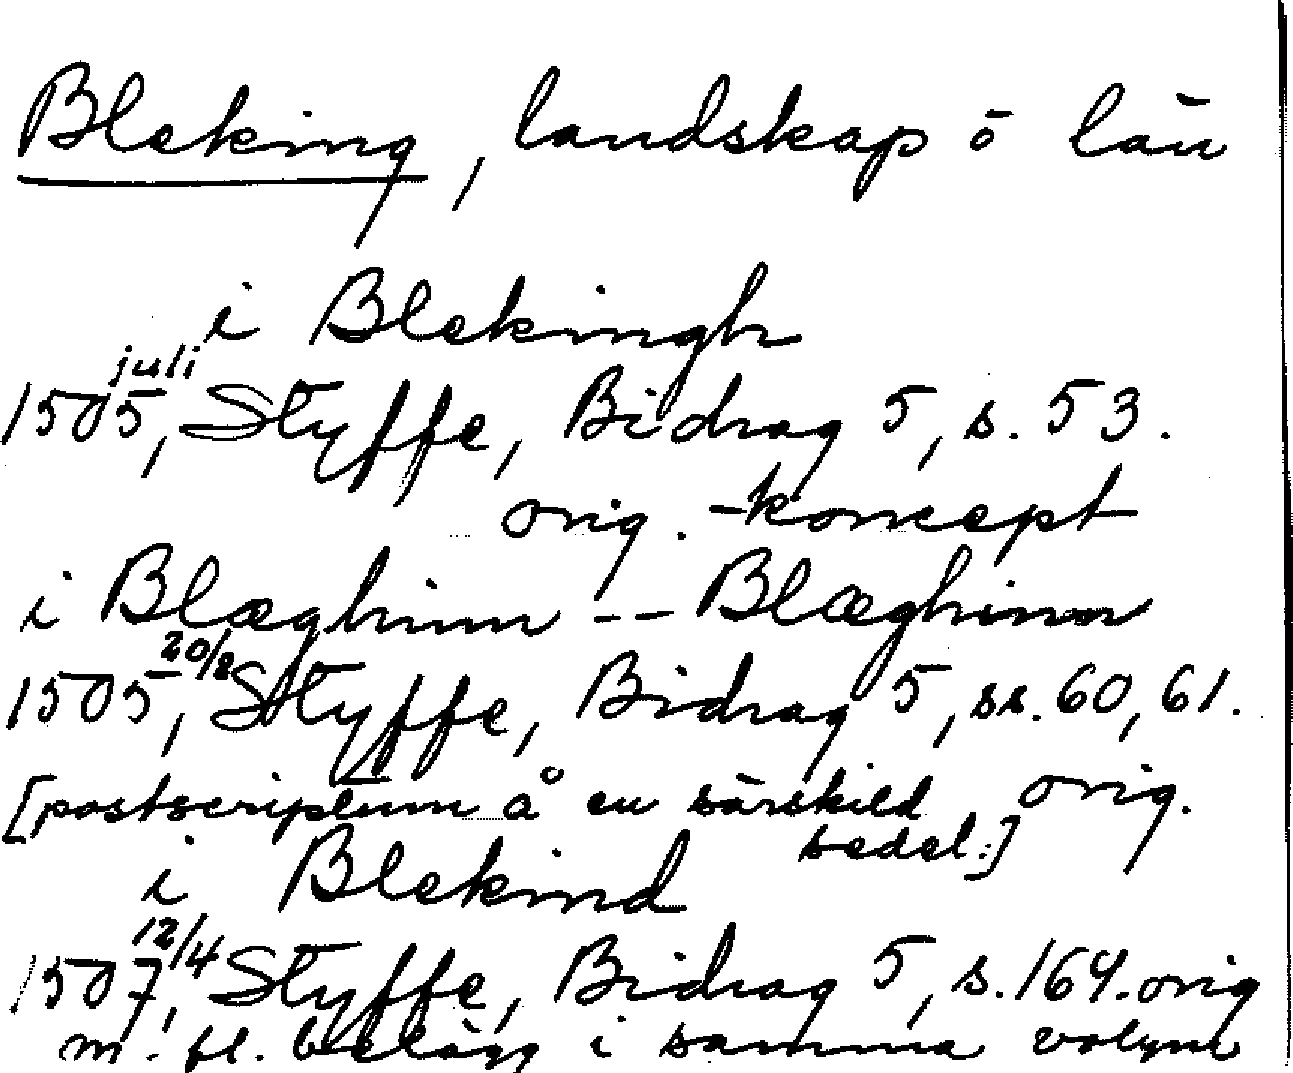 Bleking, landskap ö län
i Blekingh
juli
1505, Styffe, Bidrag 5, s. 53.
orig. -koncept
i Blæghinn -- Blæghinn
20/8
1505, Styffe, Bidrag 5, ss. 60, 61.
[postscriptum å en särskild orig.
sedel.]
i Blekind
12/4
1507, Styffe, Bidrag 5, s. 164. orig
m. fl. belägg i samma volym